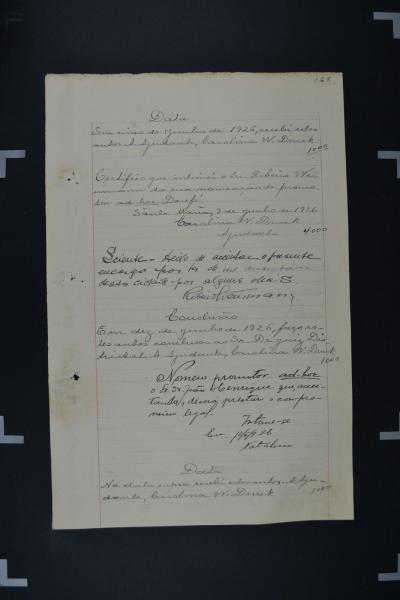 168
Data
Em cinco de Junho de 1926, recebi estes
autos. A Ajudante, Carolina W. Druck
1000
Certifico que intimei o Sr. Ribeiro
da sua nomeação de promo
tor ad-hoc. Dou fé.
Santa Maria, 9 de junho de 1926
Carolina W. Druck
Ajudante
4000
Sciente - deixo de acceitar o presente
encargo por ter de me ausentar
desta cidade por alguns dias.
Conclusão
Em dez de junho de 1926, faço es
tes autos conclusos ao Sr. Dr. Juiz Dis
trictal. A Ajudante, Carolina W. Druck
1000
Nomeio promotor ad-hoc
o Sr. Dr. João Henrique que, accei
tando, deverá prestar o compro
misso legal.
Intime-se
Data
Na data supra recebi estes autos. A Aju
dante, Carolina W. Druck
1000